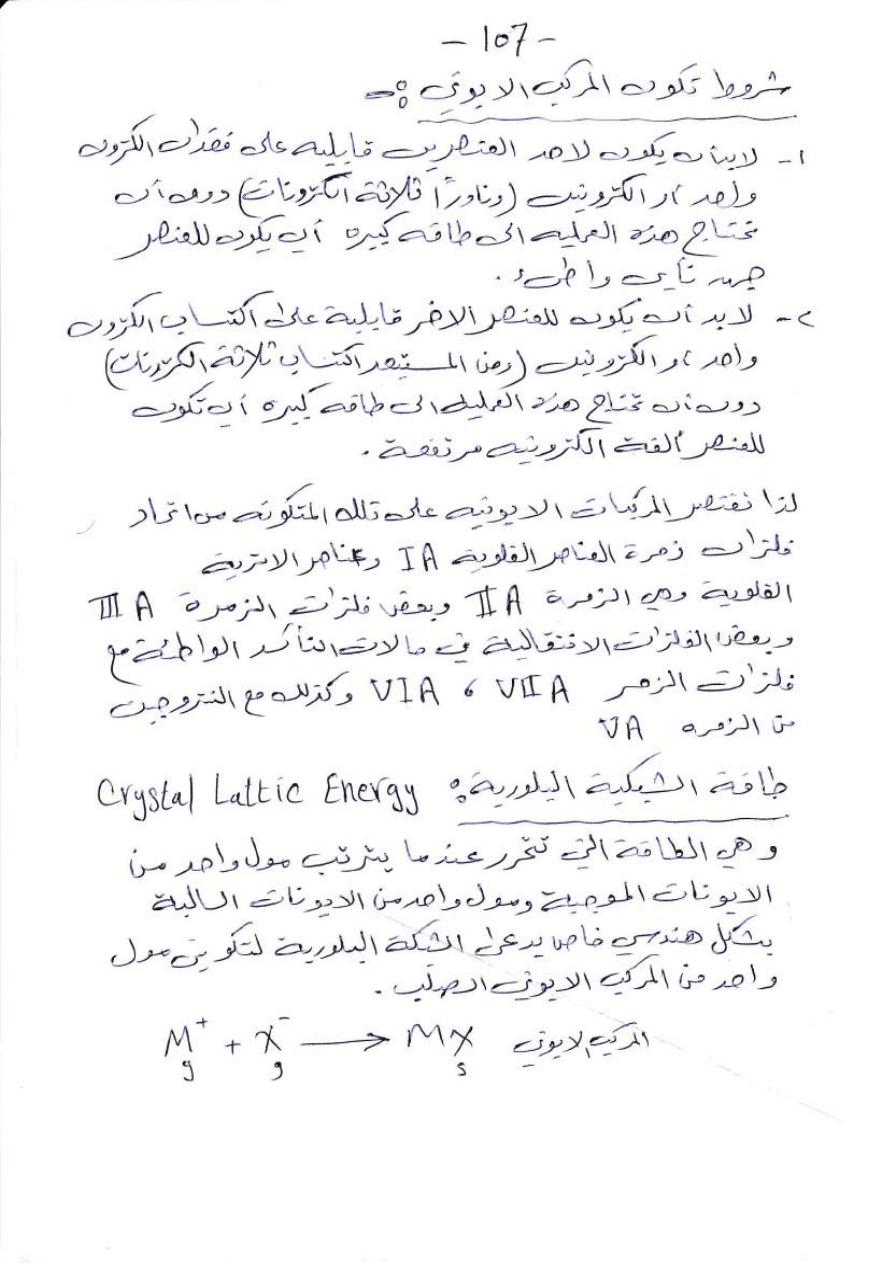 - 107 -
شروط تكون المركب الايوني :-
1- لابد أن يكون لاحد العنصرين قابلية على فقدان الكترون
واحد أو الكترونين (ونادراً ثلاثة الكترونات) دون أن
تحتاج هذه العملية الى طاقه كبيره أي يكون للعنصر
جهد تأين واطئ .
2- لابد أن يكون للعنصر الاخر قابلية على اكتساب الكترون
واحد أو الكترونين (ومن المستبعد اكتساب ثلاثة الكترونات)
دون أن تحتاج هذه العملية الى طاقه كبيره أي تكون
للعنصر ألفة الكترونيه مرتفعة .
لذا تقتصر المركبات الايونيه على تلك المتكونه من اتحاد
فلزات زمرة العناصر القلوية IA وعناصر الاتربة
القلوية وهي الزمرة IIA وبعض فلزات الزمرة IIIA
وبعض الفلزات الانتقالية في حالات التأكسد الواطئة مع
فلزات الزمر VIA ، VIIA وكذلك مع النتروجين
من الزمره VA
طاقة الشبكية البلورية : Crystal Lattic Energy
وهي الطاقة التي تتحرر عندما يترتب مول واحد من
الايونات الموجبة ومول واحد من الايونات السالبة
بشكل هندسي خاص يدعى الشبكة البلورية لتكوين مول
واحد من المركب الايوني الصلب .
M⁺g + X⁻g ⟶ MXs المركب الايوني